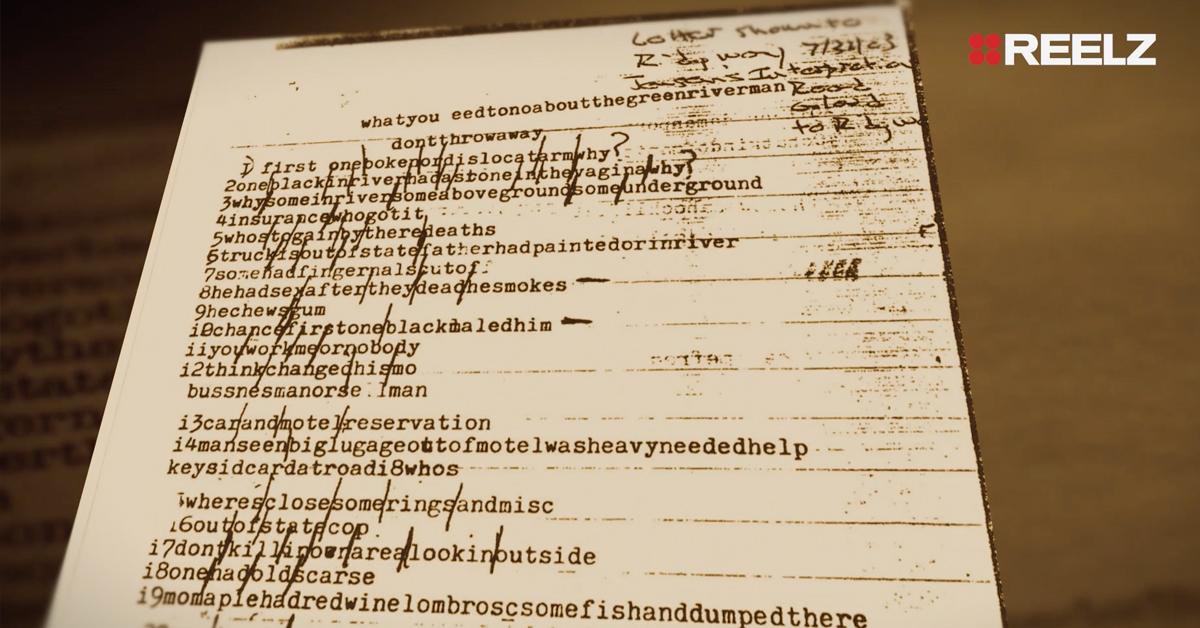 REELZ
Letter shown to
Ridgway 7/31/03
Interpretation
Read
to Ridgw
whatyou eedtonoaboutthegreenriverman
dontthrowaway
1) first onebokepordislocatarmwhy?
2oneblackinriverhadastoneinthevaginawhy?
3whysomeinriversomeabovegroundsomeunderground
4insurancewhogotit
5whostogainbytheredeaths
6truckisoutofstatefatherhadpaintedorinriver
7somehadfingernalscutof
8hehadsexaftertheydeadhesmokes
9hechewsgum
i0chancefirstoneblackmaledhim
iiyouworkmeornobody
i2thinkchangedhismo
bussnesmanorse lman
i3carandmotelreservation
i4manseenbiglugageoutofmotelwasheavyneededhelp
keysidcardatroadi8whos
wheresclosesomeringsandmisc
i6outofstatecop
i7dontkillinownarealookinoutside
i8onehadoldscarse
i9momaplehadredwinelombroscsomefishanddumpedthere